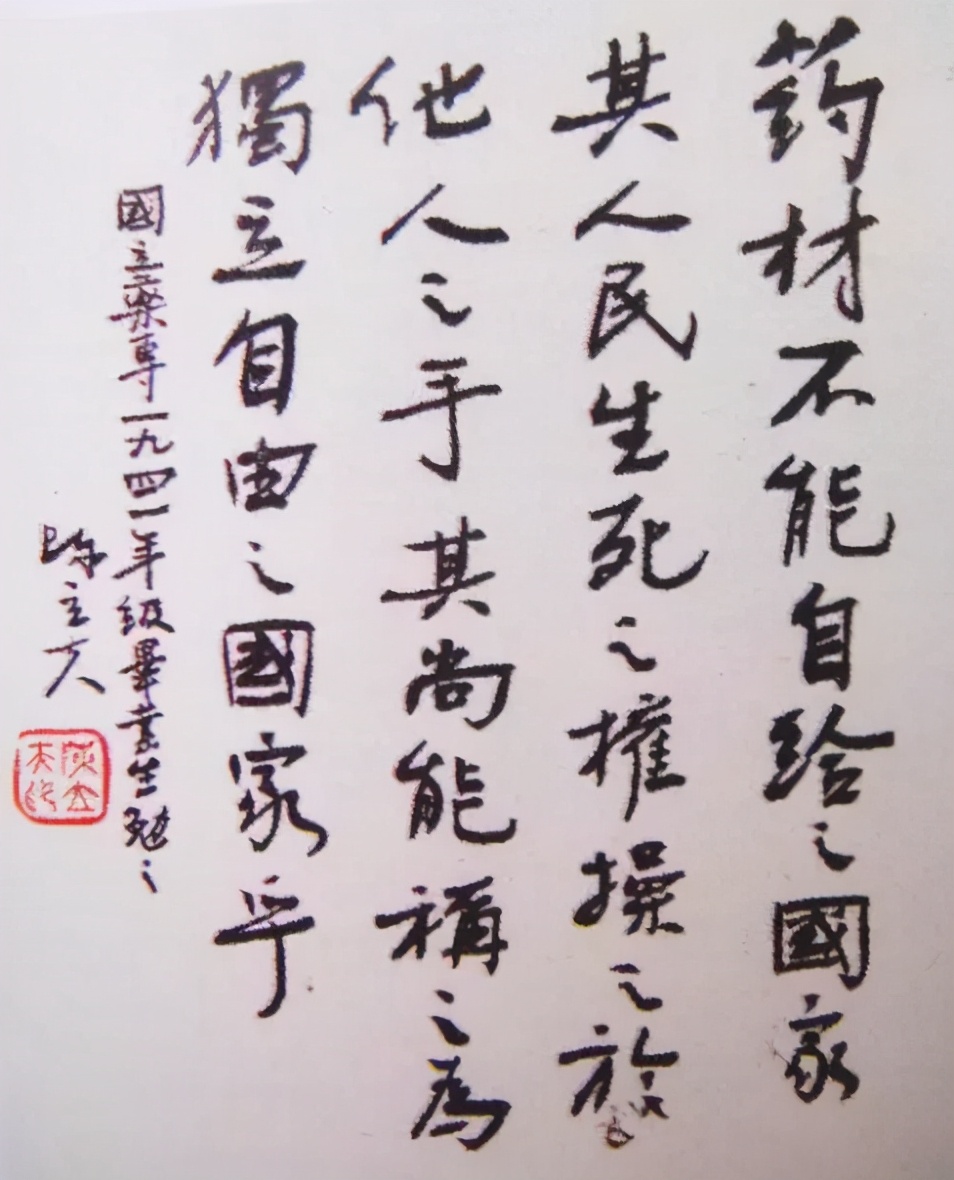 药材不能自給之國家
其人民生死之權操之於
他人之手其尚能稱之為
獨立自由之國家乎
國立藥專一九四一年級畢業生勉之
陳立夫